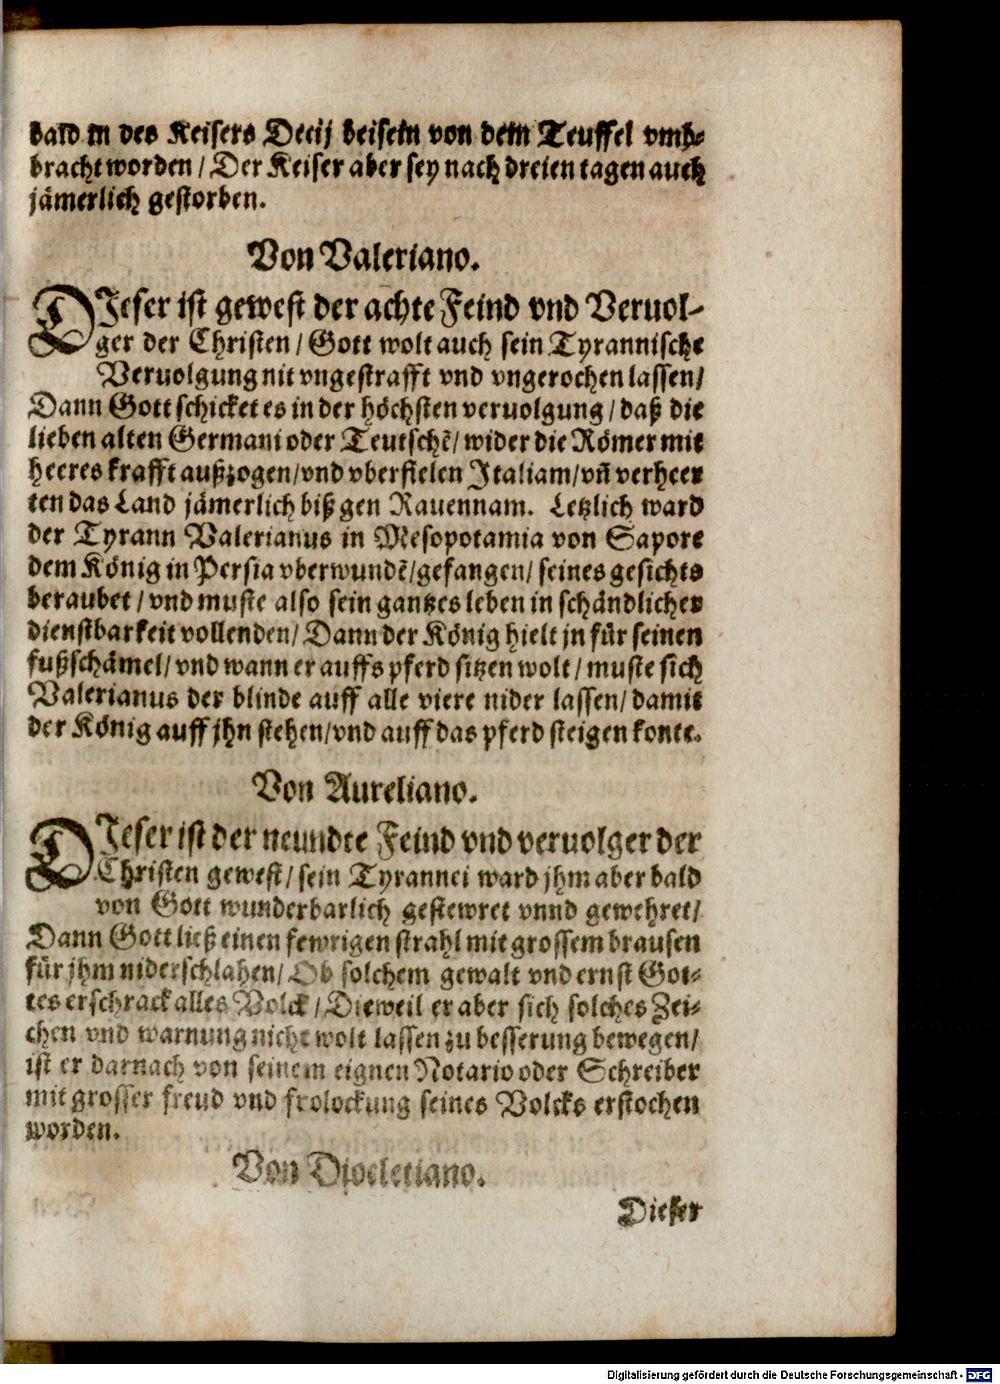 bald in des Keisers Decij beisein von dem Teuffel vmb⸗
bracht worden / Der Keiser aber sey nach dreien tagen auch
jämerlich gestorben.
Von Valeriano.
DIeser ist gewest der achte Feind vnd Veruol⸗
ger der Christen / Gott wolt auch sein Tyrannische
Veruolgung nit vngestrafft vnd vngerochen lassen /
Dann Gott schicket es in der höchsten veruolgung / daß die
lieben alten Germani oder Teutschẽ / wider die Römer mit
heeres krafft außzogen / vnd vberfielen Italiam / vñ verheer
ten das Land jämerlich biß gen Rauennam. Letzlich ward
der Tyrann Valerianus in Mesopotamia von Sapore
dem König in Persia vberwundẽ / gefangen / seines gesichts
beraubet / vnd muste also sein gantzes leben in schändlicher
dienstbarkeit vollenden / Dann der König hielt jn für seinen
fußschämel / vnd wann er auffs pferd sitzen wolt / muste sich
Valerianus der blinde auff alle viere nider lassen / damit
der König auff jhn stehen / vnd auff das pferd steigen konte.
Von Aureliano.
DIeser ist der neundte Feind vnd veruolger der
Christen gewest / sein Tyrannei ward jhm aber bald
von Gott wunderbarlich gestewret vnnd gewehret /
Dann Gott ließ einen fewrigen strahl mit grossem brausen
für jhm niderschlahen / Ob solchem gewalt vnd ernst Got⸗
tes erschrack alles Volck / Dieweil er aber sich solches Zei⸗
chen vnd warnung nicht wolt lassen zu besserung bewegen /
ist er darnach von seinem eignen Notario oder Schreiber
mit grosser freud vnd frolockung seines Volcks erstochen
worden.
Von Diocletiano.
Dieser
Digitalisierung gefördert durch die Deutsche Forschungsgemeinschaft - DFG